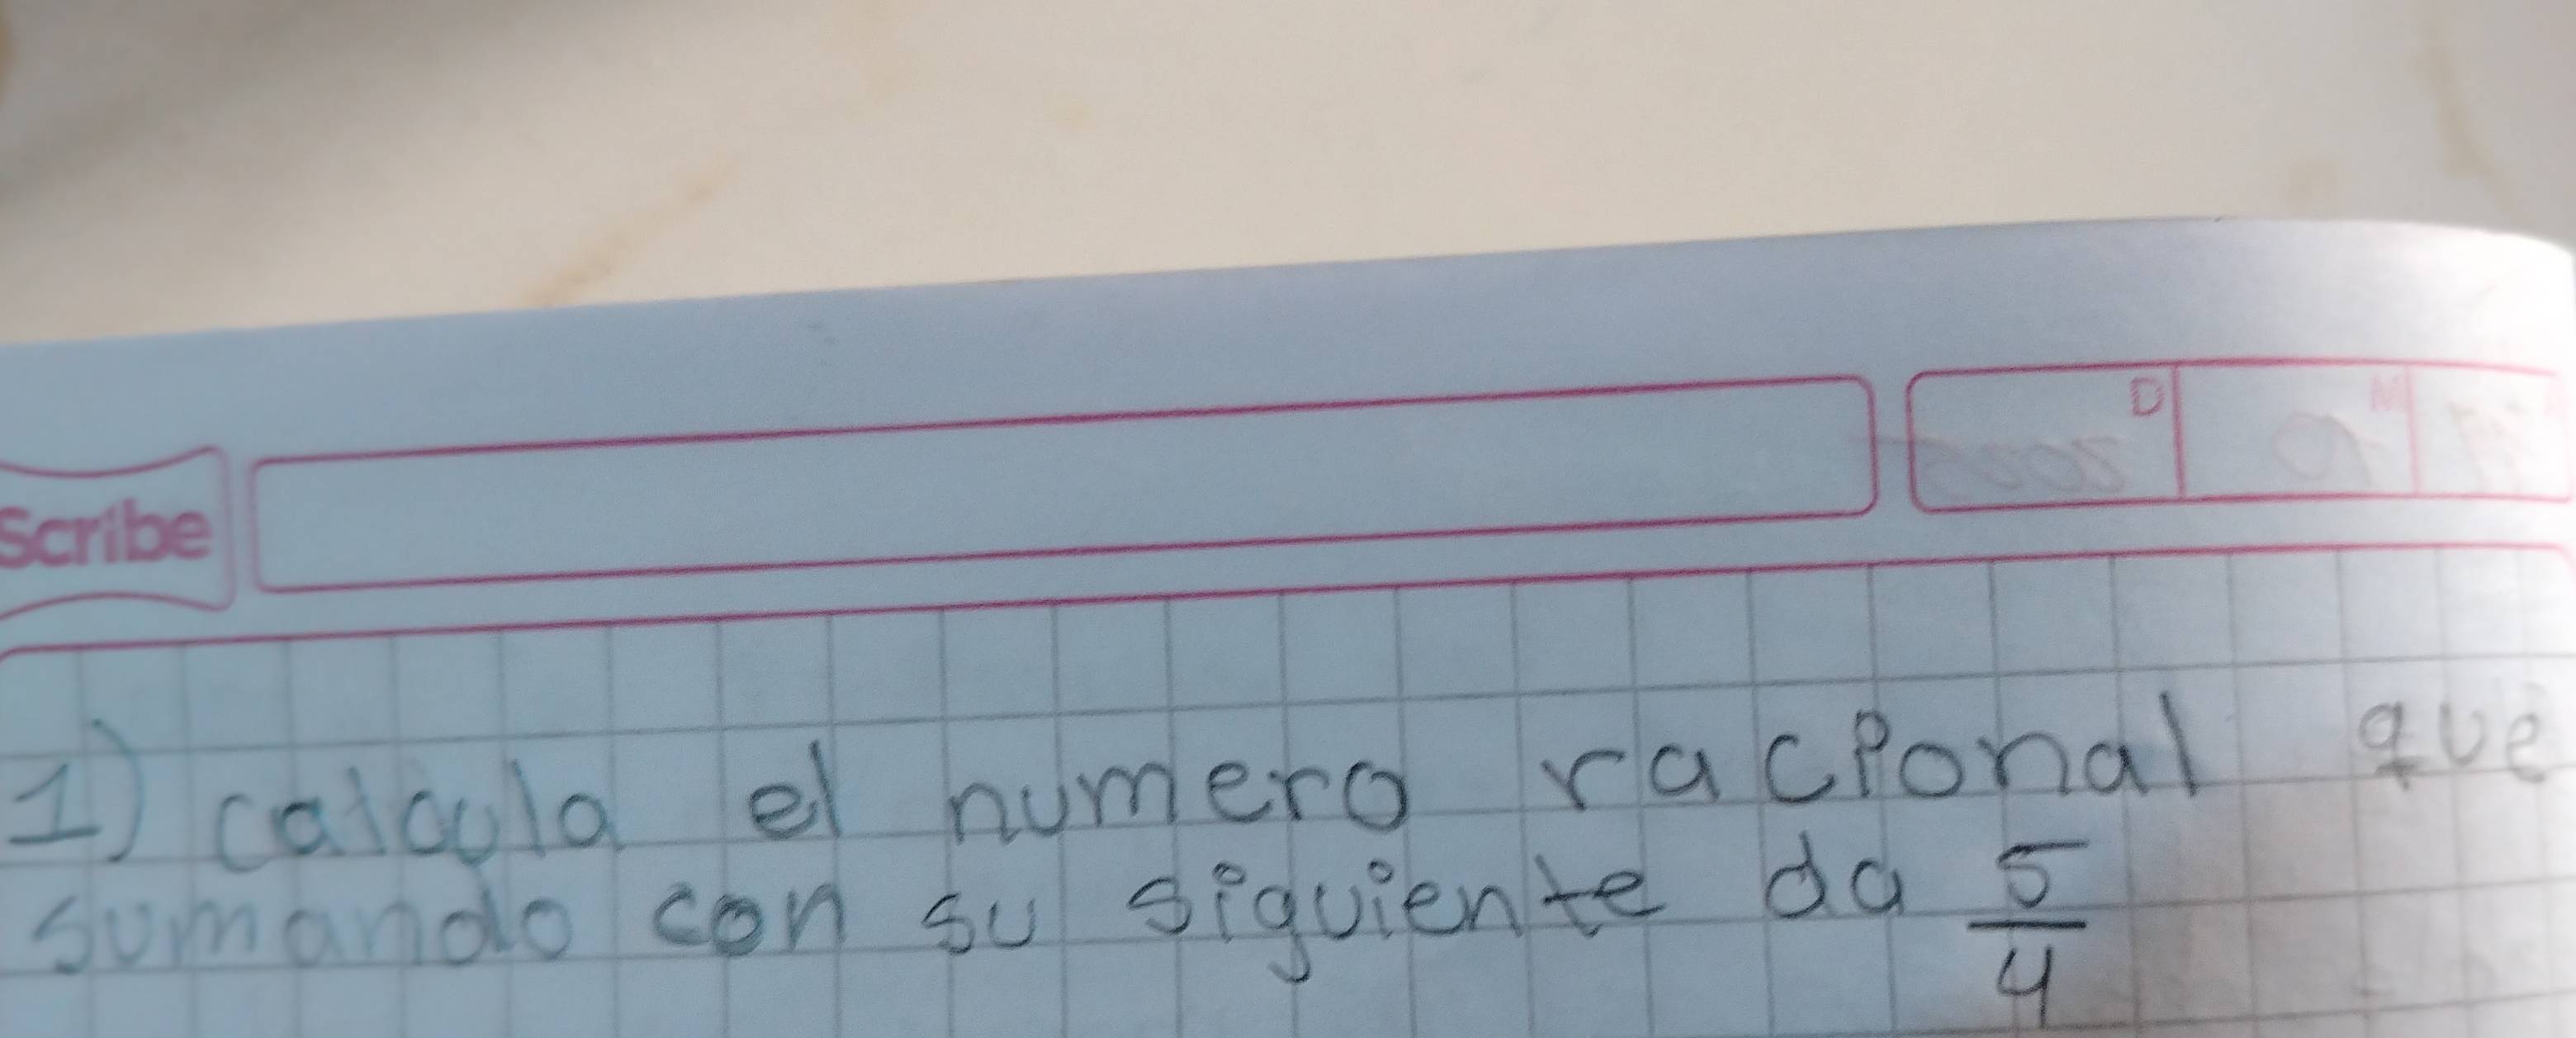 Scribe
D
M
1) calcula el numero racional que
sumando con su siguiente da 5/4